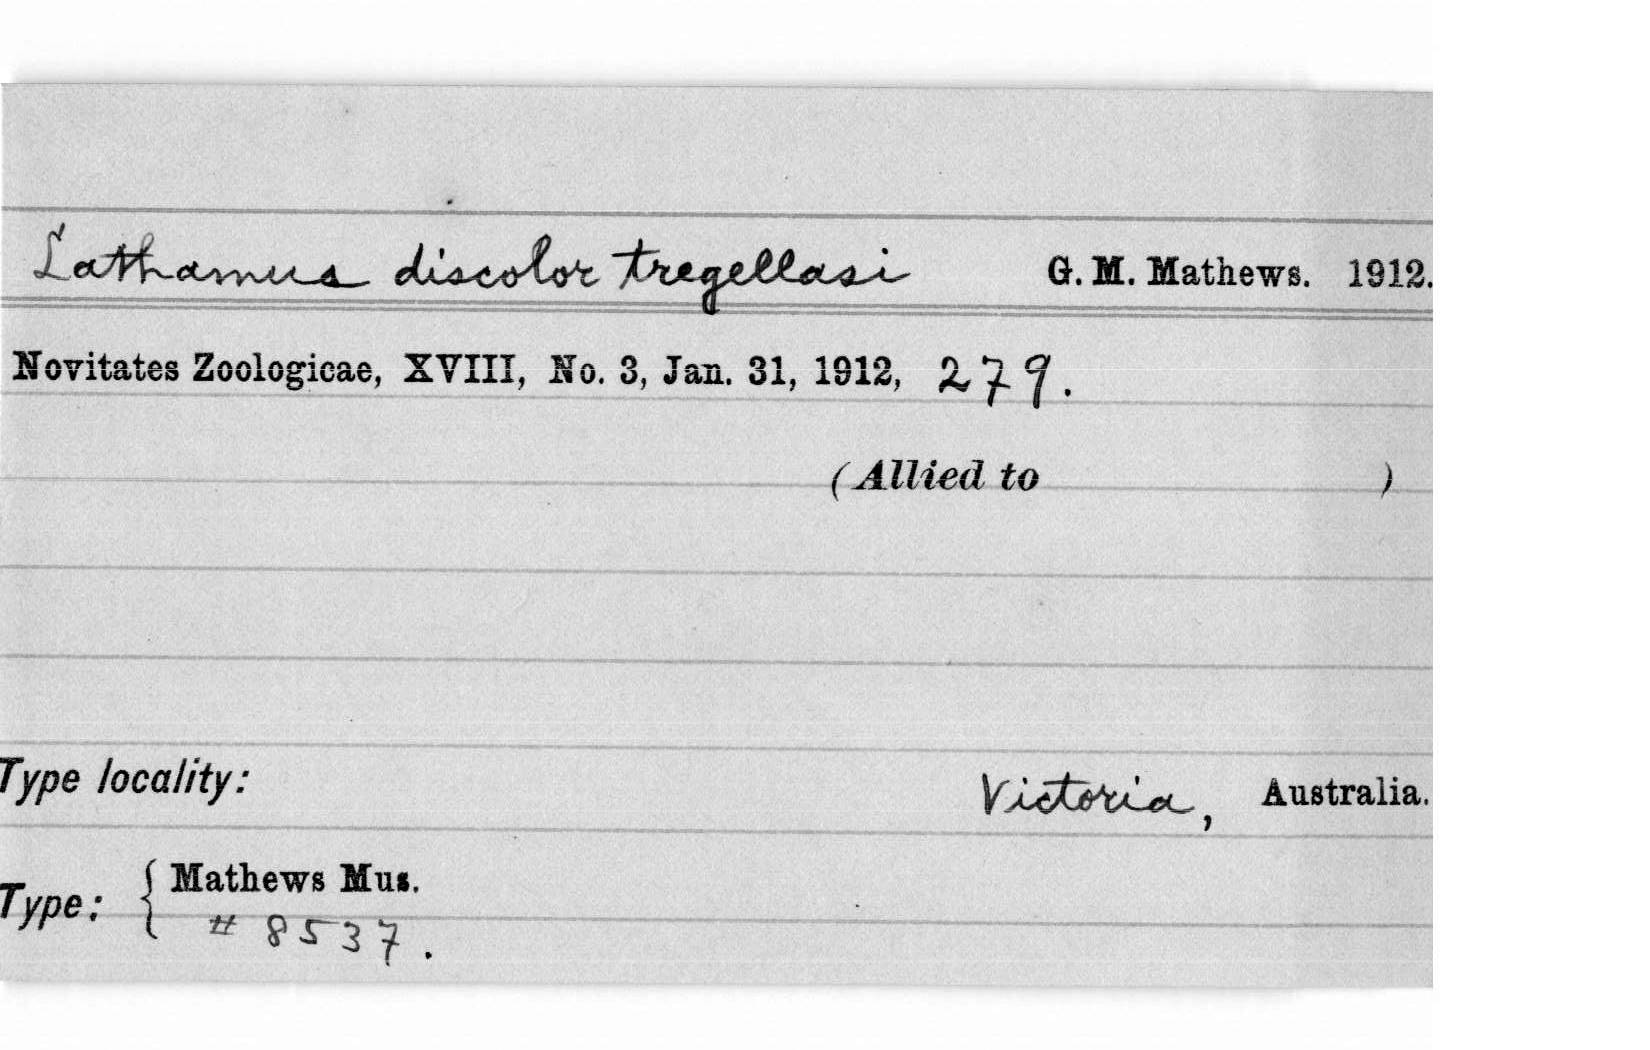 Lathamus discolor tregellasi G. M. Mathews. 1912.
Novitates Zoologicae, XVIII, No. 3, Jan. 31, 1912, 279.
(Allied to )
Type locality: Victoria, Australia.
Type: { Mathews Mus.
# 8537.